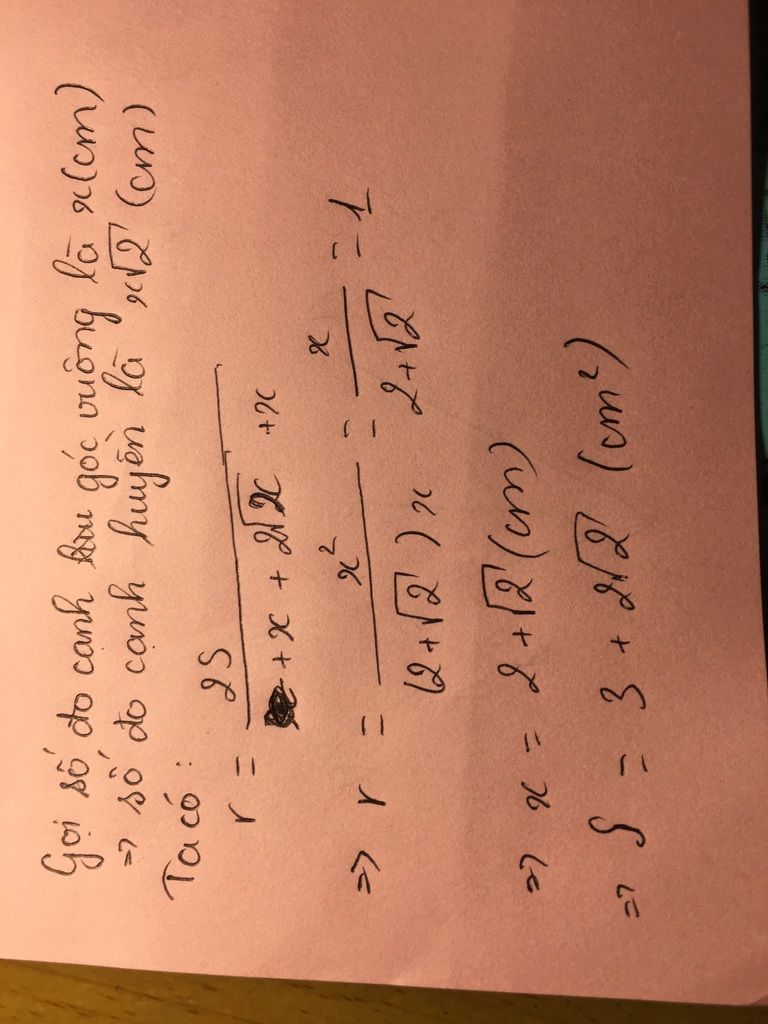 Gọi số đo cạnh góc vuông là x(cm)
=> số đo cạnh huyền là x√2 (cm)
Ta có :
r = 2S / (+ x + 2√x + x)
=> r = x² / ((2+√2)x) = x / (2+√2) = 1
=> x = 2 + √2 (cm)
=> S = 3 + 2√2 (cm²)